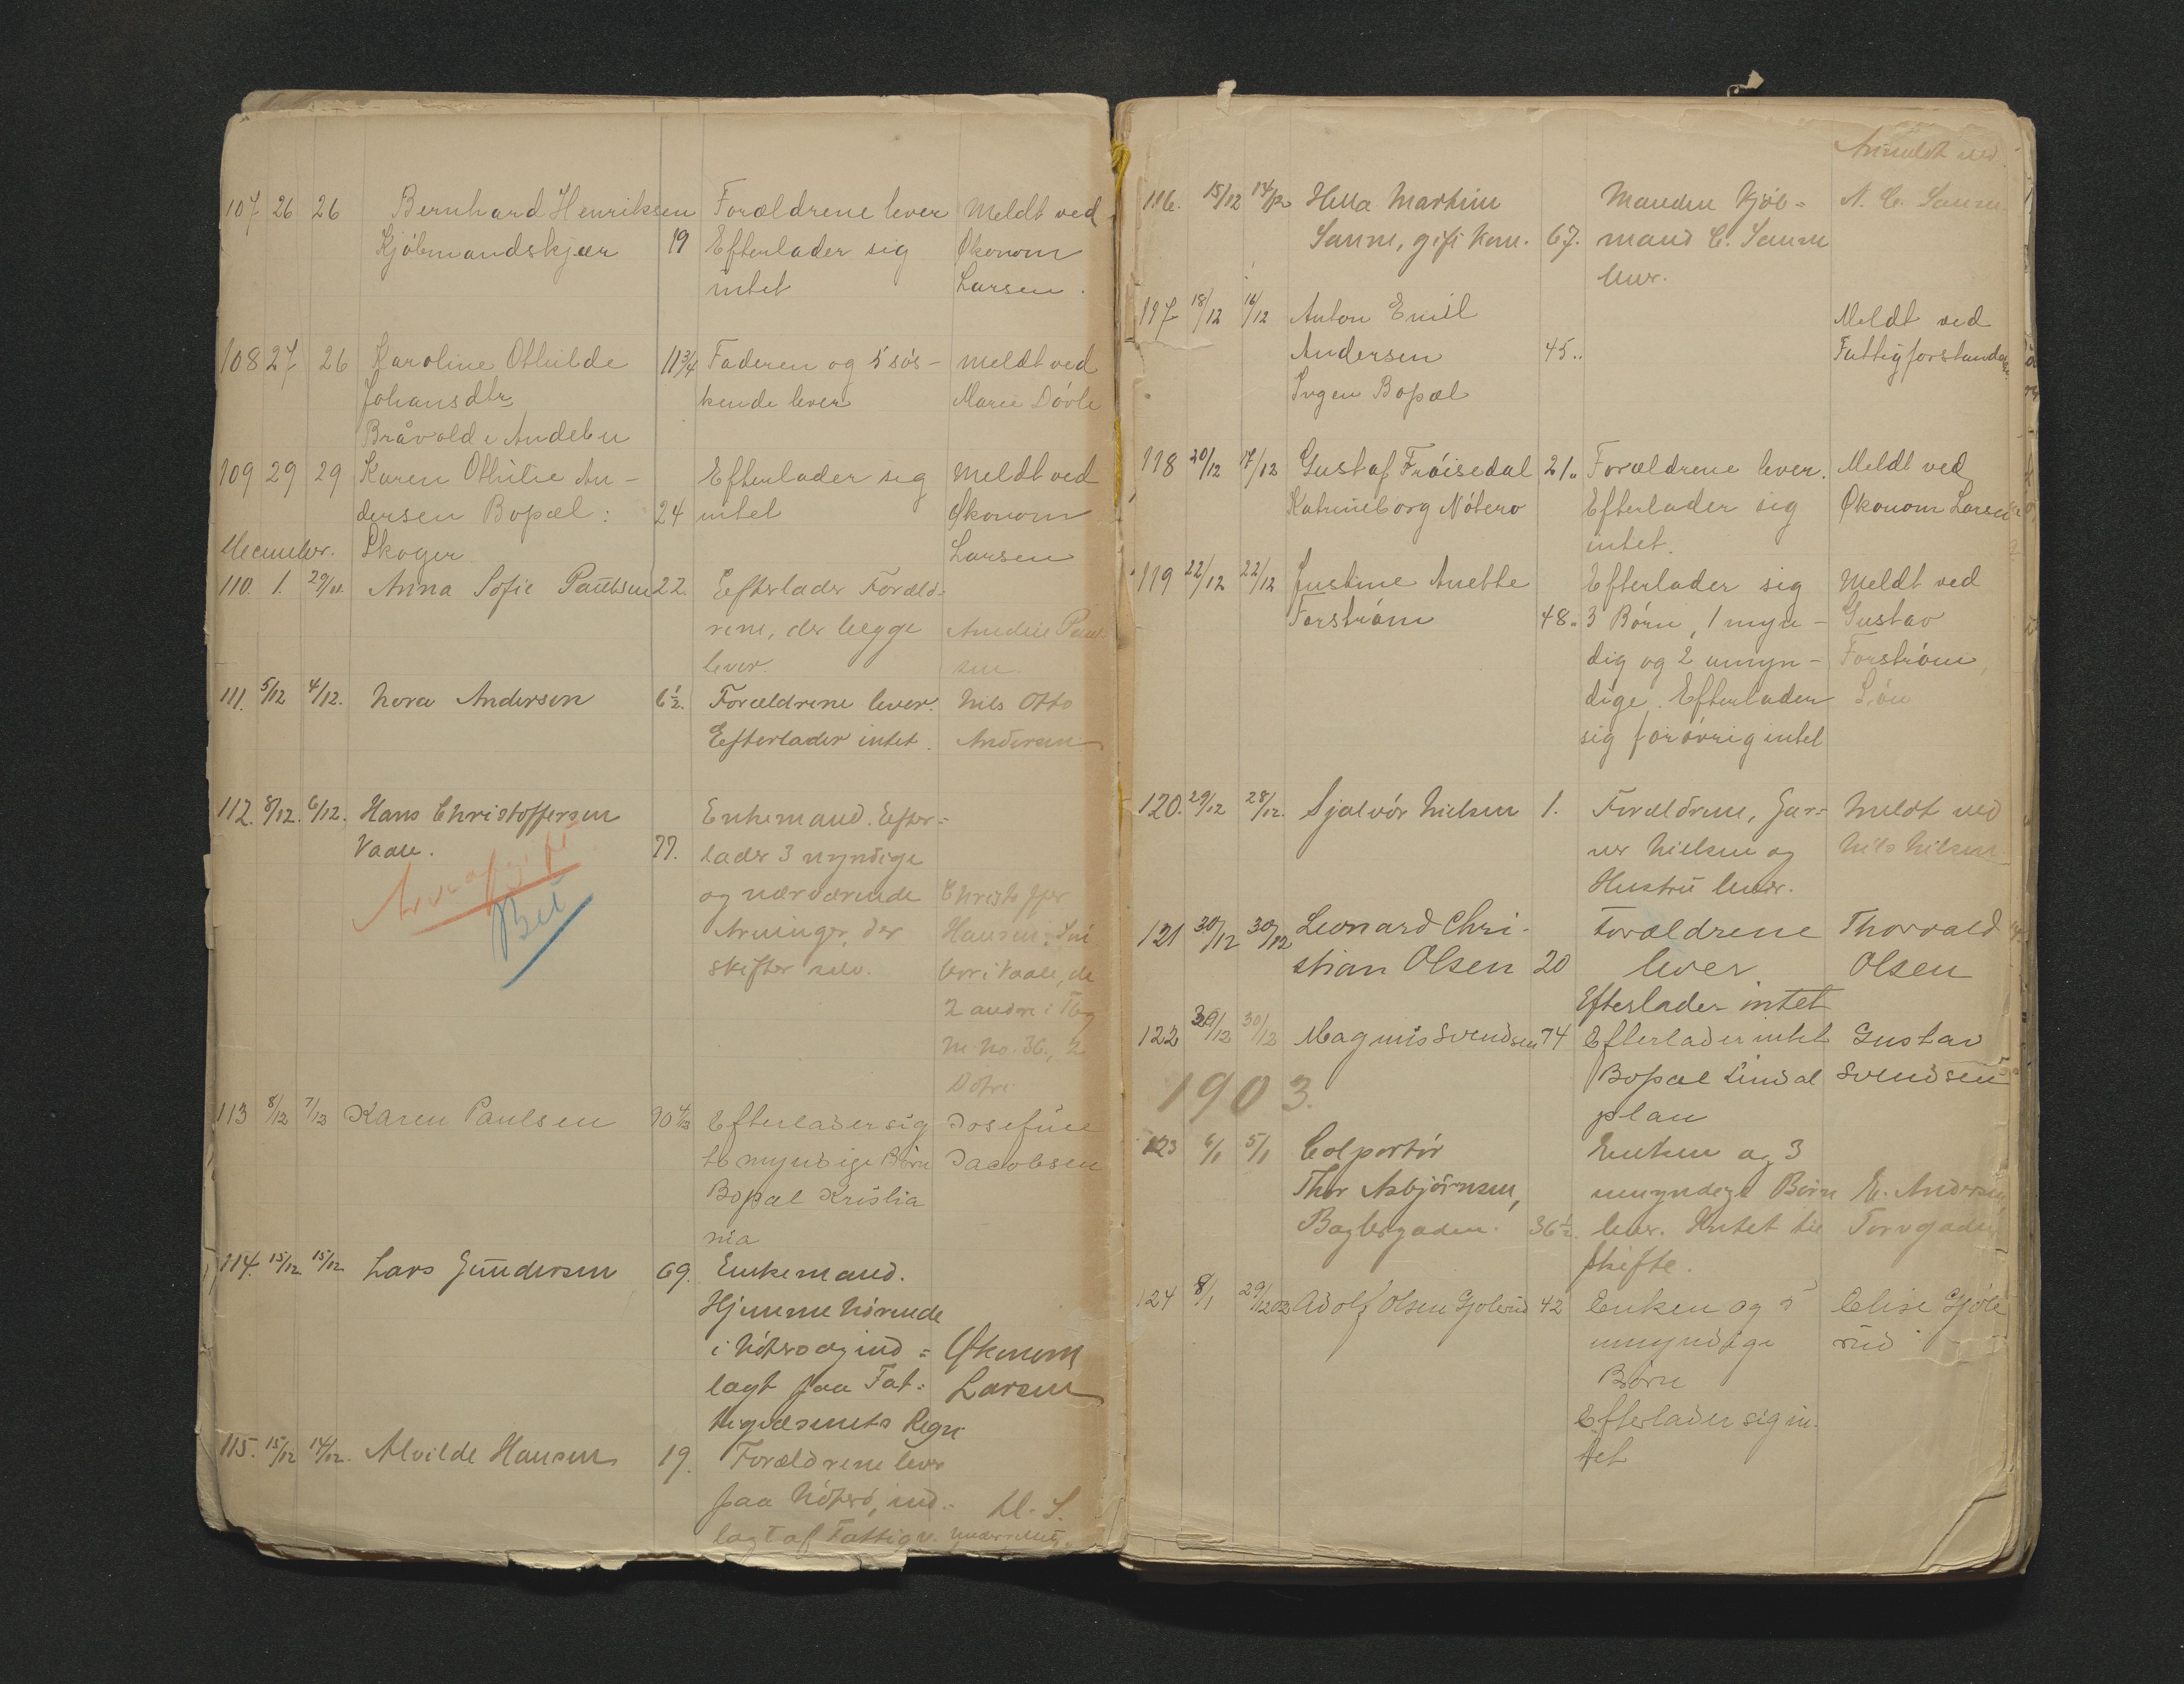 107 26 26 Bernhard Henriksen Forældrene lever Meldt ved
Kjöbmandskjær 19 Efterlader sig Økonom
intet Larsen.
108 27 26 Karoline Othilde 11 3/4 Faderen og 5 sös- meldt ved
Johansdtr kende lever Marie Dövle
Bråvold i Andebu
109 29 29 Karen Othilie An- Efterlader sig Meldt ved
dersen Bopæl: 24 intet Økonom
December. Skoger Larsen
110. 1. 29/11. Anna Sofie Paulsen 22. Efterlader Foræld-
rene, der begge
lever.
111. 5/12 4/12. Nora Andersen 6 1/2. Forældrene lever. Nils Otto
Efterlader intet. Andersen
112. 8/12. 6/12. Hans Christoffersen Enkemand. Efter-
Vaale. 77. lader 3 myndige
og nærværende Christoffer
Arvinger, der Hansen
skifter selv. bor i Vaale, de
2 andre i Tbg
M. No. 36, 2
Döttre
113 8/12 7/12 Karen Paulsen 70 Efterlader sig Josefine
to myndige Börn Jacobsen
Bopæl Kristia
nia
114. 15/12 15/12 Lars Gundersen 69. Enkemand.
Hjemmehörende
i Nöterö og ind= Økonom
lagt paa Fat= Larsen
tigvæsenets Regn.
115. 15/12 14/12. Alvilde Hansen 19. Forældrene lever
paa Nöterö, ind=
lagt af Fattigv.
Anmeldt ved
116. 15/12 14/12 Manden Kjöb= N. C. Sanne
Sanne, gift Kone. 67. mand C. Sanne
lever.
117 18/12 16/12 Anton Emil Meldt ved
Andersen 45.. Fattigforstander
Ingen Bopæl
118 20/12 17/12 Gustaf Fröisedal 21.. Forældrene lever. Meldt ved
Katrineborg Nöterö Efterlader sig Økonom Larsen
intet.
119 22/12 22/12 Justine Anette Efterlader sig Meldt ved
Forström 48.. 3 Börn, 1 myn- Gustav
dig og 2 umyn- Forström,
dige. Efterlader Sön
sig forövrig intet
120. 29/12 28/12. Sjalvör Nielsen 1. Forældrene, Gar=
ver Nielsen og Nils Nilsen
Hustru lever.
121 30/12 30/12 Leonard Chri- Forældrene Thorvald
stian Olsen 20 lever Olsen
Efterlader intet
122 30/12 30/12 Magnus Svendsen 74 Efterlader intet Gustav
Bopæl Lindal Svendsen
plan
1903.
123 6/1 5/1 Colportör Enken og 3
Thor Asbjörnsen, umyndige Börn E. Andersen,
Baglergaden. 36 1/2. lever. Intet til Torvgaden
Skifte.
124 8/1 29/12 02 Adolf Olsen Gjölerud 42 Enken og 5 Elise Gjöle
umyndige rud
Börn
Efterlader sig in-
tet